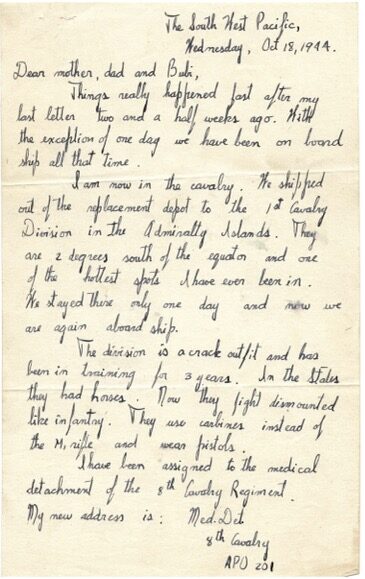 The South West Pacific,
Wednesday, Oct 18, 1944.
Dear mother, dad and Bubi,
Things really happened fast after my
last letter two and a half weeks ago. With
the exception of one day we have been on board
ship all that time.
I am now in the cavalry. We shipped
out of the replacement depot to the 1st Cavalry
Division in the Admiralty Islands. They
are 2 degrees south of the equator and one
of the hottest spots I have ever been in.
We stayed there only one day and now we
are again aboard ship.
The division is a crack outfit and has
been in training for 3 years. In the States
they had horses. Now they fight dismounted
like infantry. They use carbines instead of
the M, rifle and wear pistols.
I have been assigned to the medical
detachment of the 8th Cavalry Regiment.
My new address is: Med. Det
8th Cavalry
APO 201